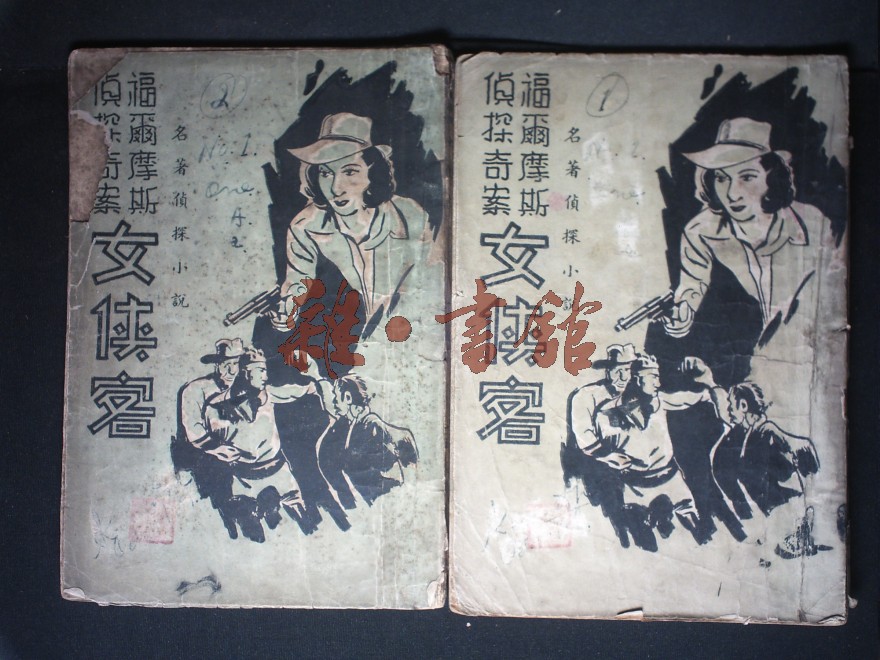 福爾摩斯
偵探奇案
名著偵探小說
女俠客
2
No: 1.
one.
福爾摩斯
偵探奇案
名著偵探小說
女俠客
1
雜·書館